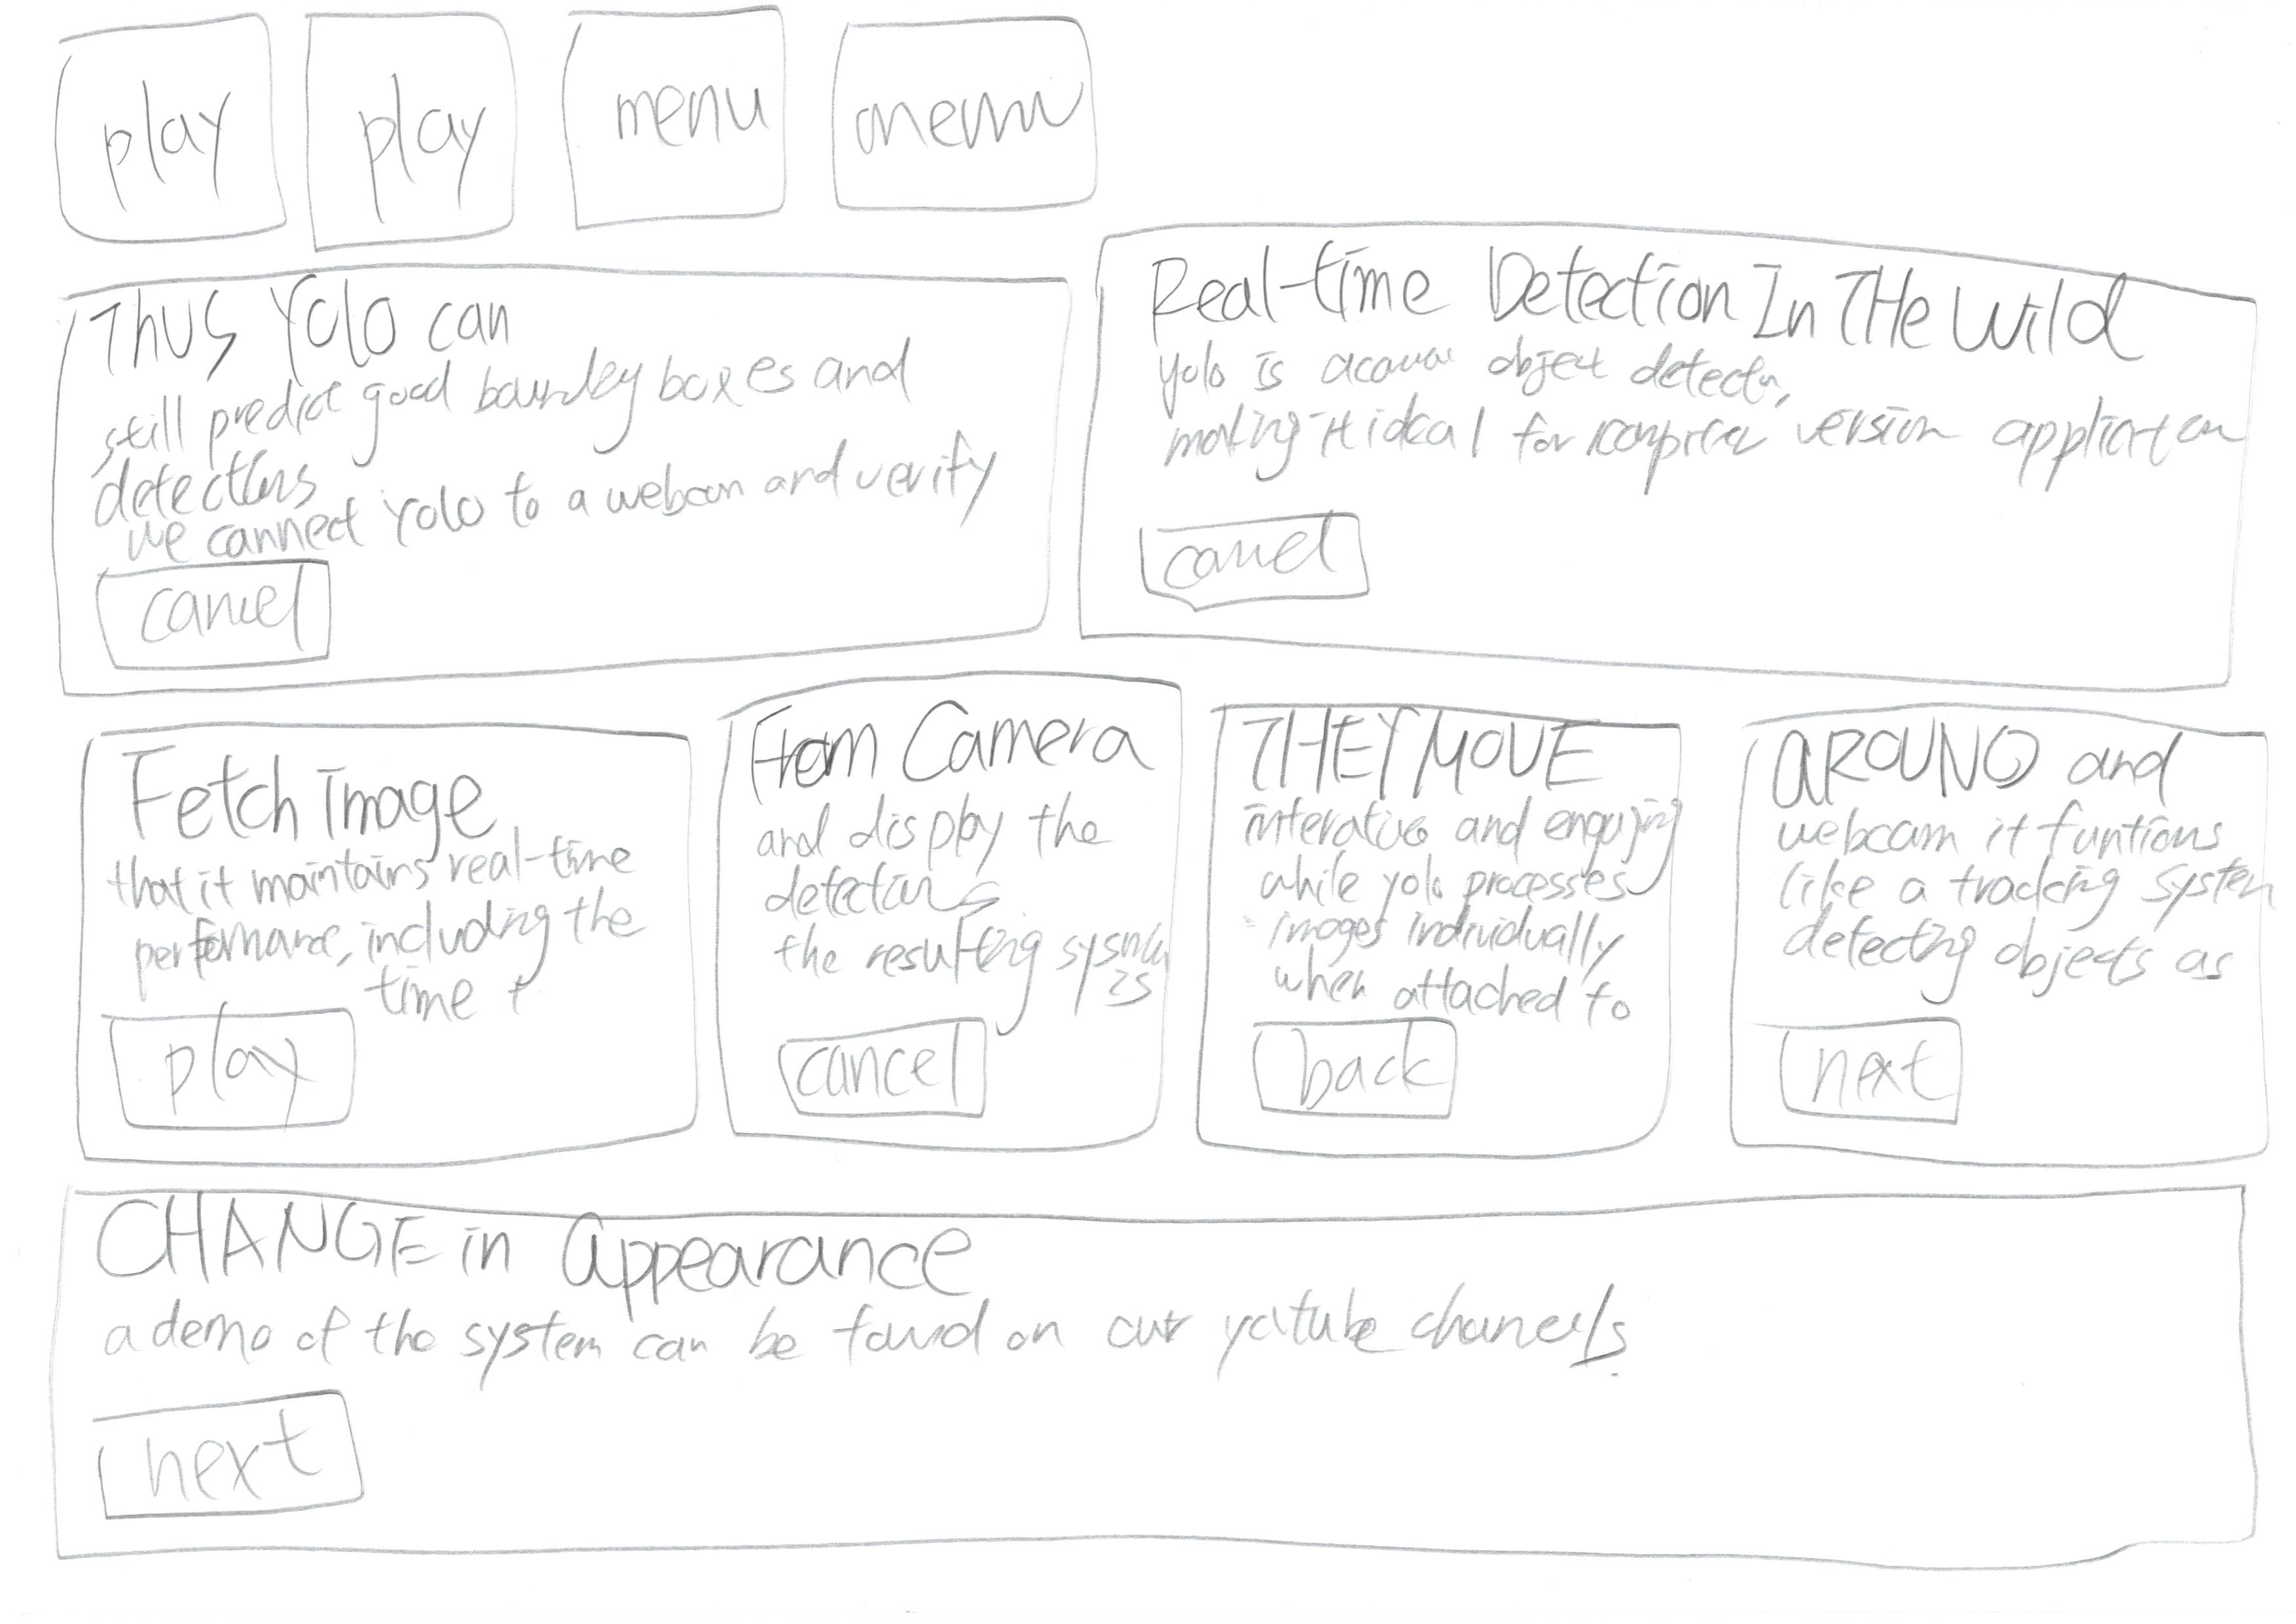 play
play
menu
menu
Thus Yolo can
still predict good boundey boxes and
detections
we connect Yolo to a webcam and verify
cancel
Real-time Detection In THe Wild
yolo is object detector,
making it ideal for version
cancel
Fetch image
that it maintains real-time
performance, including the
time t
play
From Camera
and display the
detections
the resulting
is
cancel
THEY MOVE
interative and engaging
while yolo processes
images individually
when attached to
back
AROUND and
webcam it funtions
like a tracking system
detecting objects as
next
CHANGE in Appearance
a demo of the system can be found on our chanels.
next